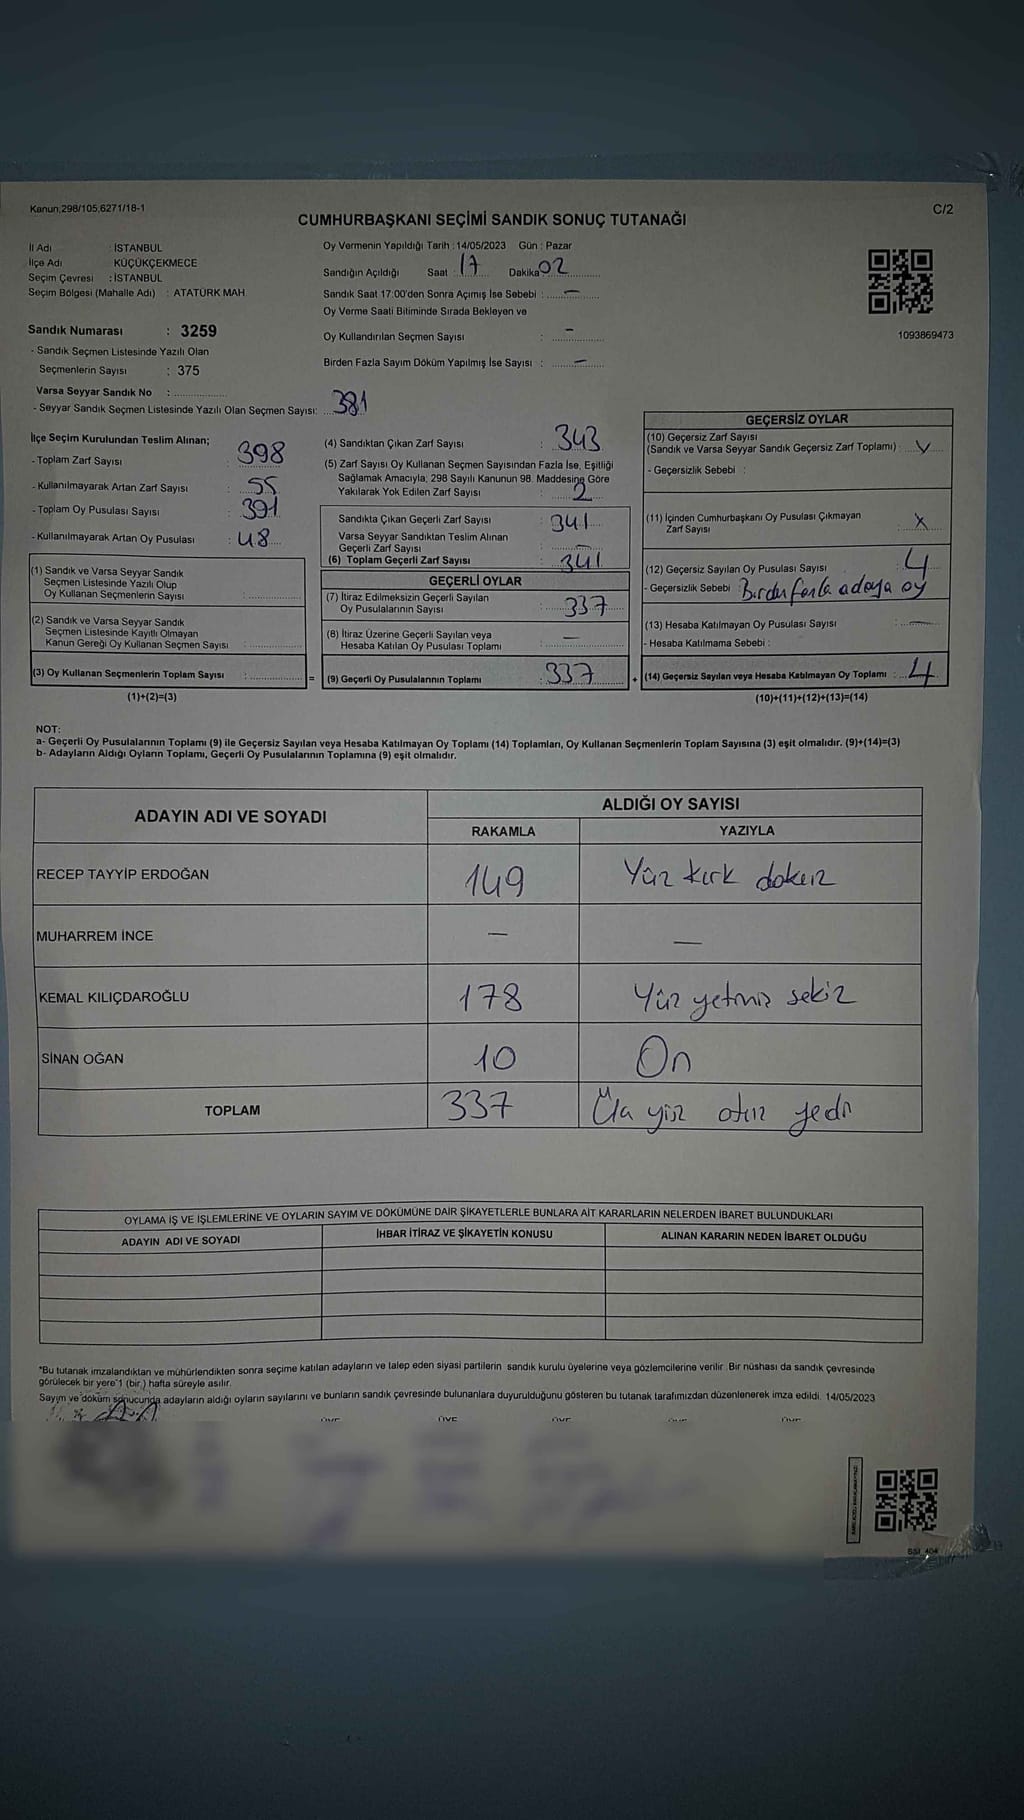 Kanun;298/105,6271/18-1
C/2
CUMHURBAŞKANI SEÇİMİ SANDIK SONUÇ TUTANAĞI
İl Adı : İSTANBUL
İlçe Adı : KÜÇÜKÇEKMECE
Seçim Çevresi : İSTANBUL
Seçim Bölgesi (Mahalle Adı) : ATATÜRK MAH.
Sandık Numarası : 3259
- Sandık Seçmen Listesinde Yazılı Olan
Seçmenlerin Sayısı : 375
Varsa Seyyar Sandık No :
- Seyyar Sandık Seçmen Listesinde Yazılı Olan Seçmen Sayısı: 381
Oy Vermenin Yapıldığı Tarih : 14/05/2023 Gün : Pazar
Sandığın Açıldığı Saat : 17 Dakika 02
Sandık Saat 17:00'den Sonra Açımış İse Sebebi : —
Oy Verme Saati Bitiminde Sırada Bekleyen ve
Oy Kullandırılan Seçmen Sayısı : —
Birden Fazla Sayım Döküm Yapılmış İse Sayısı : —
1093869473
İlçe Seçim Kurulundan Teslim Alınan;
- Toplam Zarf Sayısı : 398
- Kullanılmayarak Artan Zarf Sayısı : 55
- Toplam Oy Pusulası Sayısı : 391
- Kullanılmayarak Artan Oy Pusulası : 48
(1) Sandık ve Varsa Seyyar Sandık
Seçmen Listesinde Yazılı Olup
Oy Kullanan Seçmenlerin Sayısı :
(2) Sandık ve Varsa Seyyar Sandık
Seçmen Listesinde Kayıtlı Olmayan
Kanun Gereği Oy Kullanan Seçmen Sayısı :
(3) Oy Kullanan Seçmenlerin Toplam Sayısı : =
(1)+(2)=(3)
(4) Sandıktan Çıkan Zarf Sayısı : 343
(5) Zarf Sayısı Oy Kullanan Seçmen Sayısından Fazla İse, Eşitliği
Sağlamak Amacıyla; 298 Sayılı Kanunun 98. Maddesine Göre
Yakılarak Yok Edilen Zarf Sayısı : 2
Sandıkta Çıkan Geçerli Zarf Sayısı : 341
Varsa Seyyar Sandıktan Teslim Alınan
Geçerli Zarf Sayısı : —
(6) Toplam Geçerli Zarf Sayısı : 341
GEÇERLİ OYLAR
(7) İtiraz Edilmeksizin Geçerli Sayılan
Oy Pusulalarının Sayısı : 337
(8) İtiraz Üzerine Geçerli Sayılan veya
Hesaba Katılan Oy Pusulası Toplamı : —
(9) Geçerli Oy Pusulalarının Toplamı : 337 +
GEÇERSİZ OYLAR
(10) Geçersiz Zarf Sayısı
(Sandık ve Varsa Seyyar Sandık Geçersiz Zarf Toplamı) :
- Geçersizlik Sebebi :
(11) İçinden Cumhurbaşkanı Oy Pusulası Çıkmayan
Zarf Sayısı : X
(12) Geçersiz Sayılan Oy Pusulası Sayısı : 4
- Geçersizlik Sebebi : Birden fazla adaya oy
(13) Hesaba Katılmayan Oy Pusulası Sayısı : —
- Hesaba Katılmama Sebebi :
(14) Geçersiz Sayılan veya Hesaba Katılmayan Oy Toplamı : 4
(10)+(11)+(12)+(13)=(14)
NOT:
a- Geçerli Oy Pusulalarının Toplamı (9) ile Geçersiz Sayılan veya Hesaba Katılmayan Oy Toplamı (14) Toplamları, Oy Kullanan Seçmenlerin Toplam Sayısına (3) eşit olmalıdır. (9)+(14)=(3)
b- Adayların Aldığı Oyların Toplamı, Geçerli Oy Pusulalarının Toplamına (9) eşit olmalıdır.
ADAYIN ADI VE SOYADI
ALDIĞI OY SAYISI
RAKAMLA YAZIYLA
RECEP TAYYİP ERDOĞAN 149 Yüz kırk dokuz
MUHARREM İNCE — —
KEMAL KILIÇDAROĞLU 178 Yüz yetmiş sekiz
SİNAN OĞAN 10 On
TOPLAM 337 Üç yüz otuz yedi
OYLAMA İŞ VE İŞLEMLERİNE VE OYLARIN SAYIM VE DÖKÜMÜNE DAİR ŞİKAYETLERLE BUNLARA AİT KARARLARIN NELERDEN İBARET BULUNDUKLARI
ADAYIN ADI VE SOYADI İHBAR İTİRAZ VE ŞİKAYETİN KONUSU ALINAN KARARIN NEDEN İBARET OLDUĞU
*Bu tutanak imzalandıktan ve mühürlendikten sonra seçime katılan adayların ve talep eden siyasi partilerin sandık kurulu üyelerine veya gözlemcilerine verilir. Bir nüshası da sandık çevresinde
görülecek bir yere 1 (bir) hafta süreyle asılır.
Sayım ve döküm sonucunda adayların aldığı oyların sayılarını ve bunların sandık çevresinde bulunanlara duyurulduğunu gösteren bu tutanak tarafımızdan düzenlenerek imza edildi. 14/05/2023
ÜYE ÜYE ÜYE ÜYE ÜYE